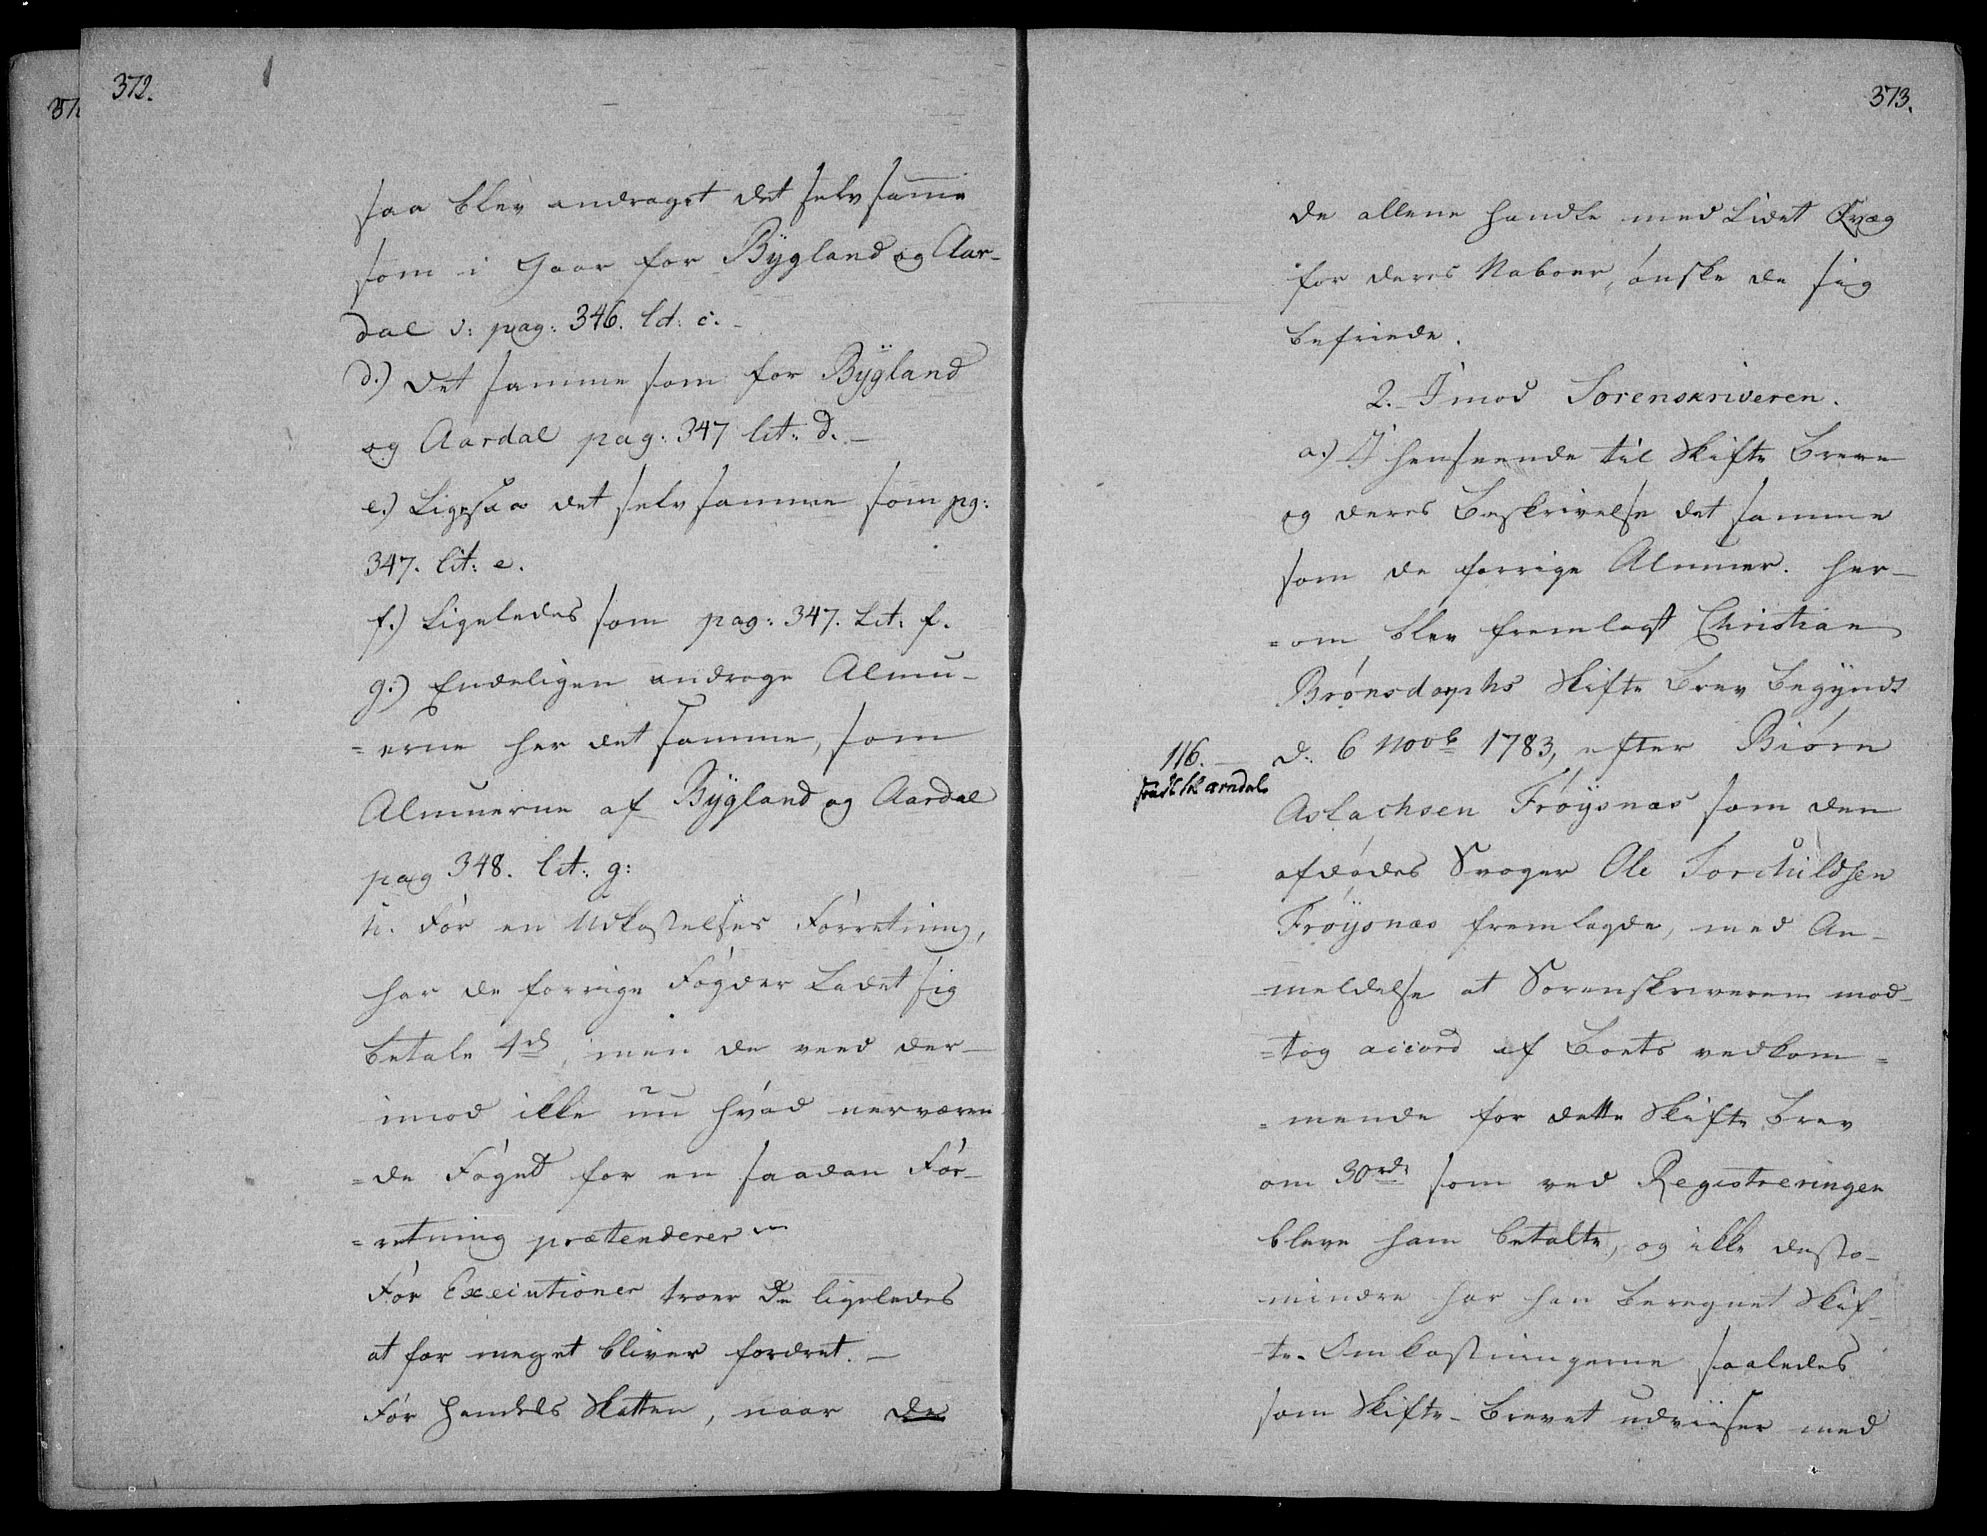 372.
saa blev andraget det selv samme
som i Gaar for Bÿgland og Aar-
dal v: pag: 346. ld: c. -
d.) Det samme som for Bÿgland
og Aardal pag: 347 lit: d. -
e.) Ligesaa det selv samme som pg:
347. lit: e.
f.) Ligeledes som pag: 347. Lit: f.
g.) Endeligen androge Almu-
= erne her det samme, som
Almuerne af Bÿgland og Aardal
pag 348. lit: g:
h. For en Udkastelses Forretning,
har de forrige Fogder Ladet sig
betale 4rd, men de veed der-
imod ikke nu hvad nerværen
= de Foged for en saadan For-
= retning prætenderer
For Executioner troer De ligeledes
at for meget bliver fordret. -
For Handels Skatten, naar de
373.
de allene handle med Lidet Qvæg
for deres Naboer, ønske de sig
befriede.
2. Imod Sorenskriveren.
a.) I henseende til Skifte Breve
og deres Beskrivelse det samme
som de forrige Almuer. her-
= om blev fremlagt Christian
Brønsdorphs Skifte Brev Begÿndt
116.
d: 6 Novb 1783, efter Biørn
Aslachsen Frøÿsnæs som den
afdødes Svoger Ole Torchildsen
Frøÿsnæs fremlagde, med An-
-meldelse at Sorenskriveren mod-
= tog accord af Boets vedkom =
= mende for dette Skifte Brev
om 30rd: som ved Registreringen
bleve ham betalte, og ikke desto-
mindre har han beregnet Skif-
te- Omkostningerne saaledes
som Skifte-Brevet udviiser med